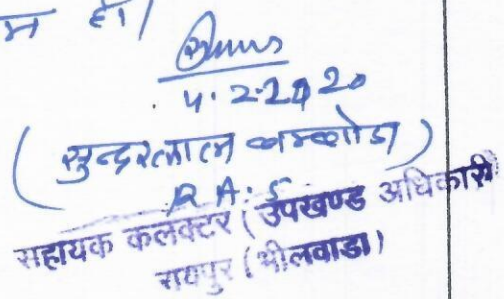 हो।
4.2.2020
(सुन्दरलाल बम्बोडा)
R.A.S
सहायक कलक्टर (उपखण्ड अधिकारी)
रायपुर (भीलवाडा)